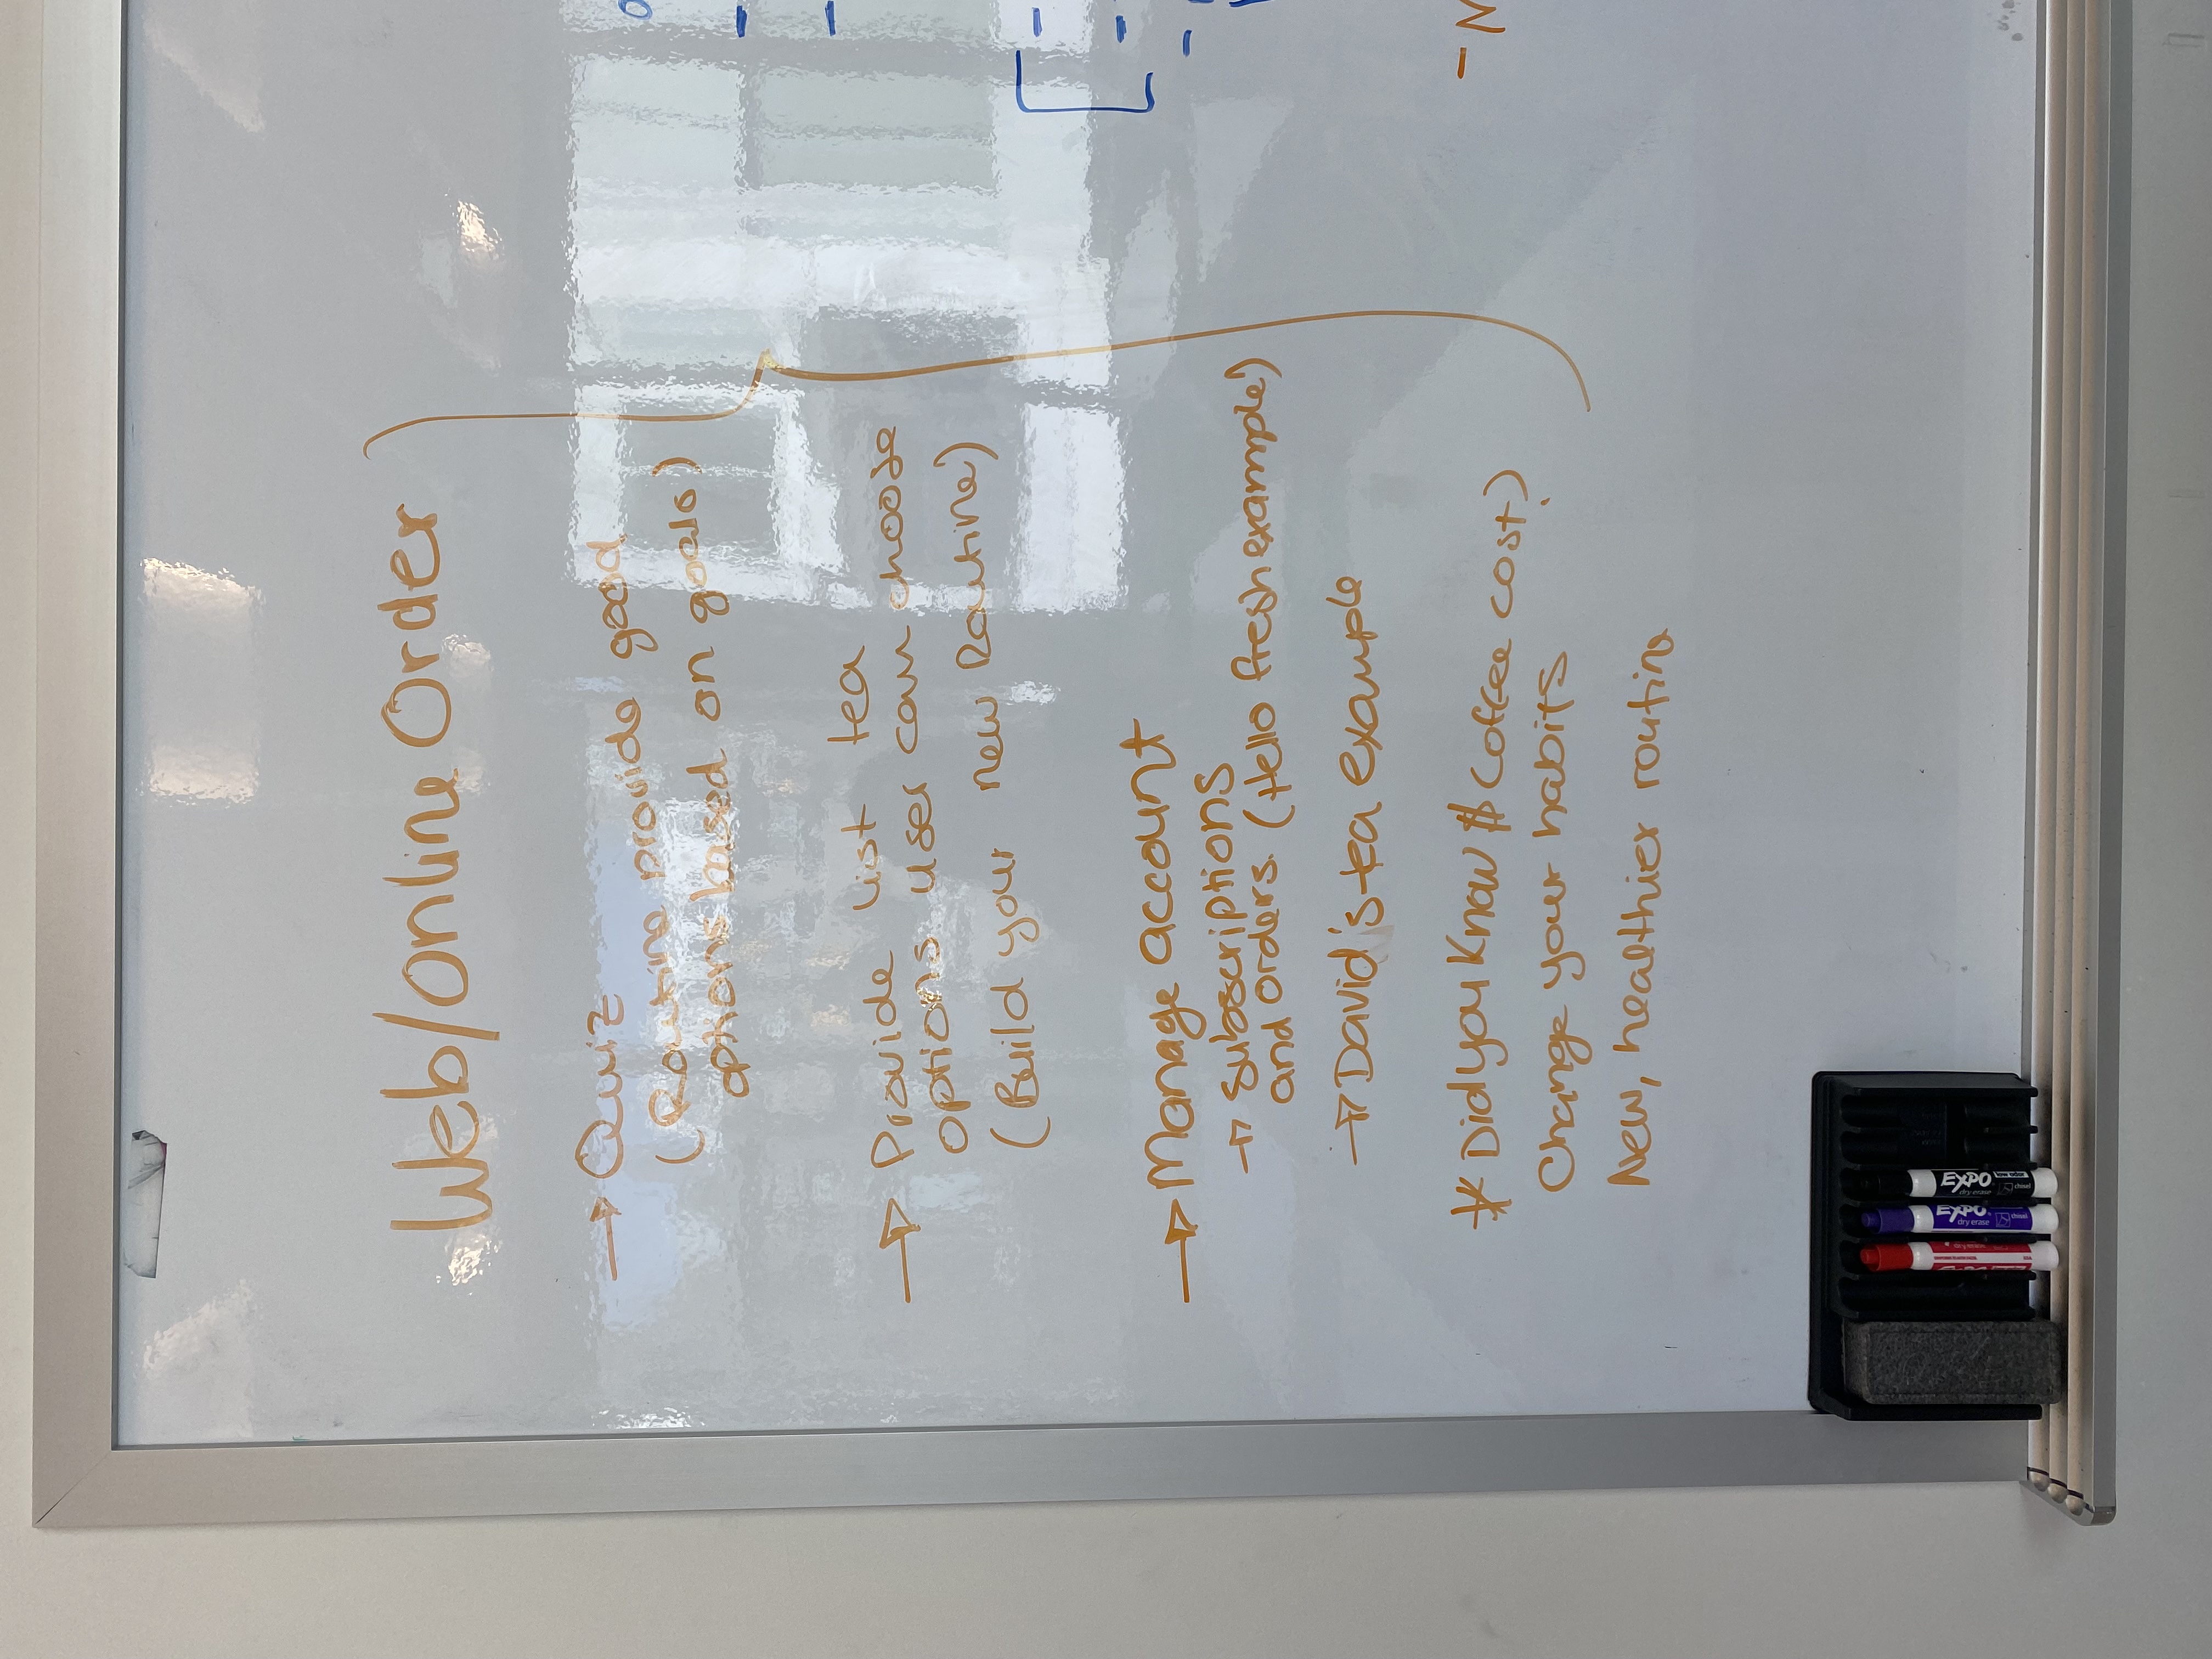 Web/Online Order
→ Quiz
(Routine provide good
options based on goals)
→ Provide list tea
options user can choose
(Build your new Routine)
→ Manage account
→ subscriptions
and orders. (Hello fresh example)
→ David's tea example
* Did you know $ (coffee cost)
Change your habits
New, healthier routine
- N
EXPO
dry erase
EXPO
dry erase